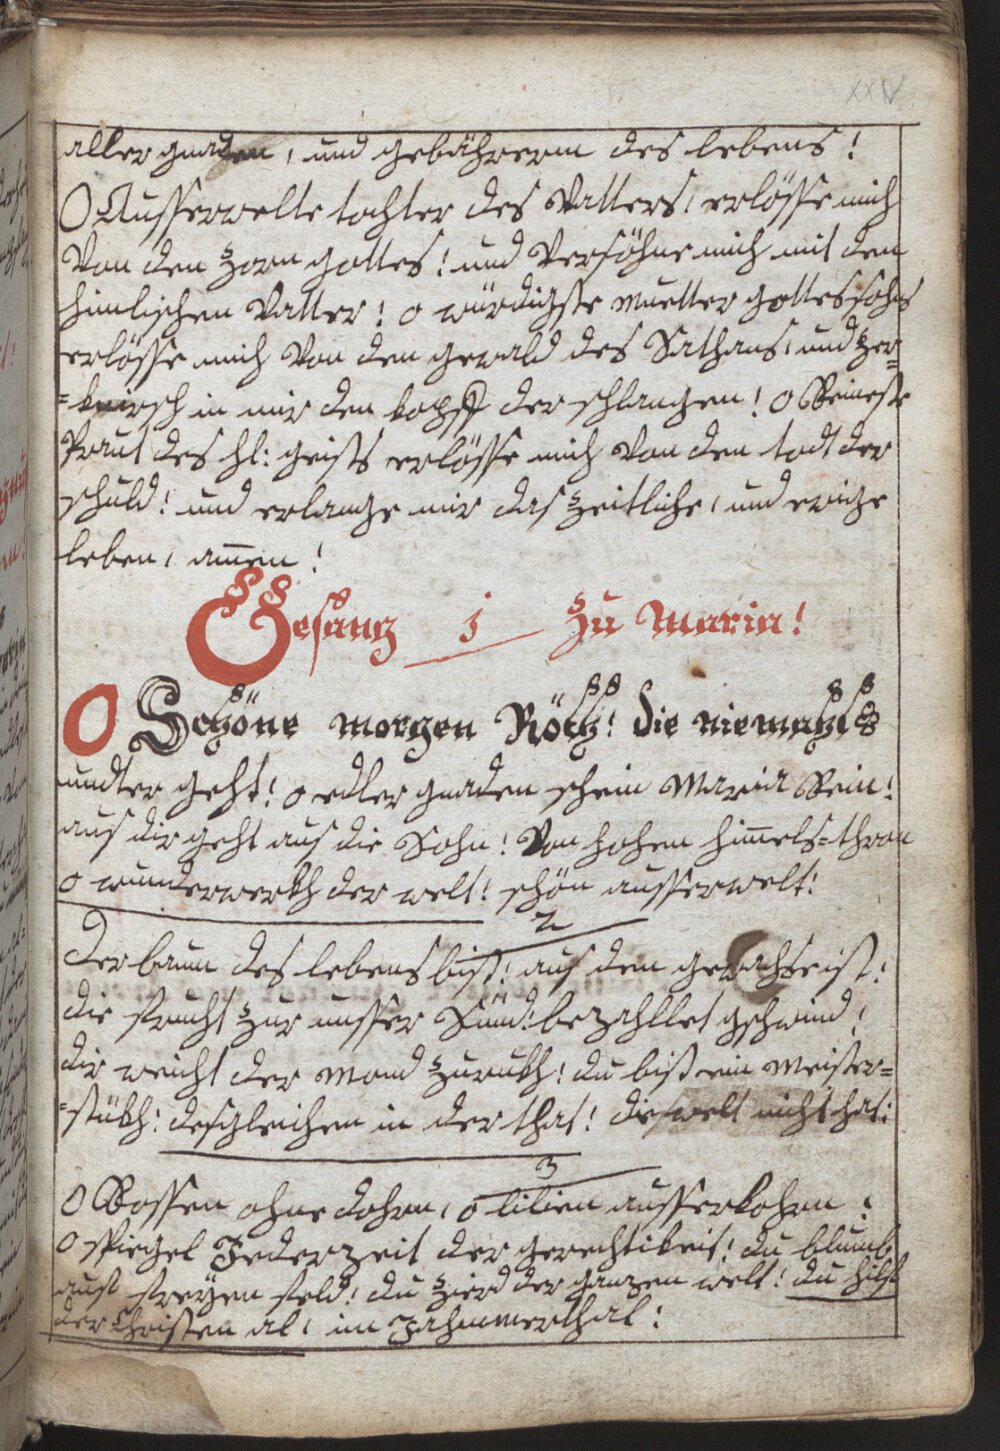 XXV
aller gnaden, und gebährerin des lebens!
O Ausserwelte tochter des Vatters, erlösse mich
Von den Zorn gottes! und Versöhne mich mit den
himlischen Vatter! o würdigste Muetter gottes sohns
erlösse mich Von den gewald des Sathans, und zer=
=knirsch in mir den kopff der schlangen! o Reineste
Praut des hl: geists erlösse mich Von den todt der
schuld! und erlange mir das zeitliche, und ewige
leben, amen!
Gesang 1 Zu Maria!
O Schöne morgen Röth! die niemahls
undter geht! o edler gnaden schein Maria Rein!
aus dir geht auf die Sohn! Von hohen himels=thron
o wunderwerkh der welt! schön ausserwelt!
2
Der baum des lebens bist! auf dem gewachse ist!
die frucht zur unsser Sünd! bezahllet gschwind!
dir weicht der Mond zurukh! du bist ein Meister=
=stükh: desgleichen in der that! die welt nicht hat:
3
O Rossen ohne dohrn, o lilien ausserkohrn!
o spiegel Jederzeit der gerechtikeit! du blumb
auf freyen feld! du zierd der ganzen welt! du hilf
der Christen al, im Jahmmerthal: